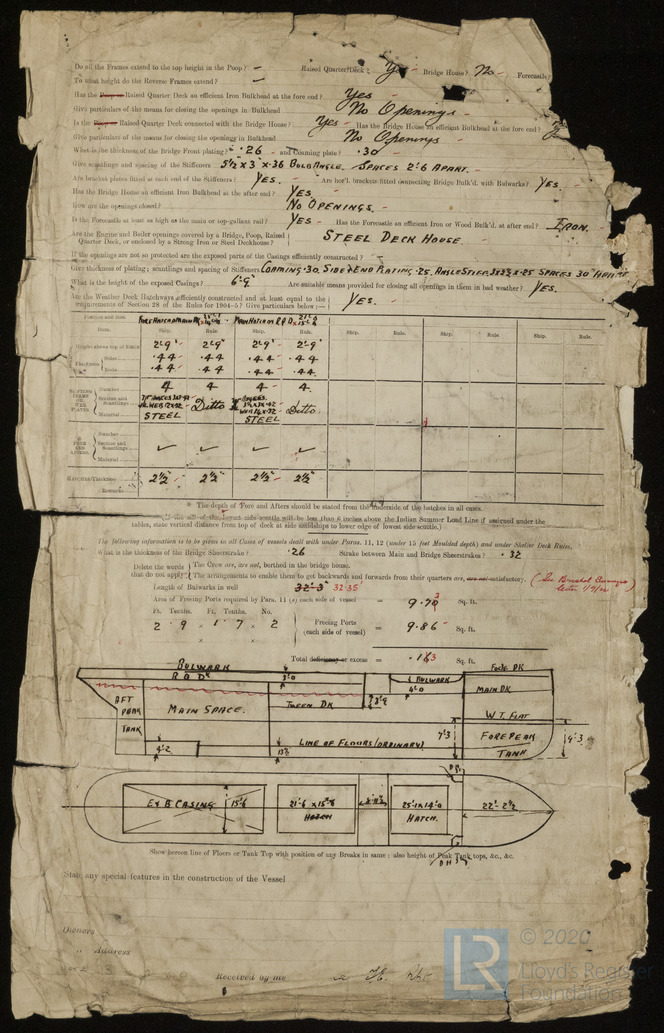 Do all the Frames extend to the top height in the Poop? – Raised Quarter Deck? Yes Bridge House? No Forecastle?
To what height do the Reverse Frames extend? –
Has the Raised Quarter Deck an efficient Iron Bulkhead at the fore end? Yes
Give particulars of the means for closing the openings in Bulkhead No Openings
Is the Raised Quarter Deck connected with the Bridge House? Yes - Has the Bridge House an efficient Bulkhead at the fore end?
Give particulars of the means for closing the openings in Bulkhead No Openings
What is the thickness of the Bridge Front plating? ·26 and Coaming plate? ·30
Give scantlings and spacing of the Stiffeners 5½ x 3 x ·36 BULB ANGLE. SPACES 2'.6 APART.
Are bracket plates fitted at each end of the Stiffeners? YES. Are hor'l. brackets fitted connecting Bridge Bulk'd. with Bulwarks? YES.
Has the Bridge House an efficient Iron Bulkhead at the after end? YES
How are the openings closed? NO OPENINGS.
Is the Forecastle at least as high as the main or top-gallant rail? YES - Has the Forecastle an efficient Iron or Wood Bulk'd. at after end? IRON.
Are the Engine and Boiler openings covered by a Bridge, Poop, Raised
Quarter Deck, or enclosed by a Strong Iron or Steel Deckhouse? STEEL DECK HOUSE.
If the openings are not so protected are the exposed parts of the Casings efficiently constructed?
Give thickness of plating; scantlings and spacing of Stiffeners COAMING ·30. SIDE & END PLATING ·25. ANGLE STIFF. SPACES 30"
What is the height of the exposed Casings? 6'-9" Are suitable means provided for closing all openings in them in bad weather? YES.
Are the Weather Deck Hatchways efficiently constructed and at least equal to the
requirements of Section 28 of the Rules for 1904-5? Give particulars below:— YES.
Position and Size. FORE HATCH MAIN DK MAIN HATCH R Q D
Item. Ship. Rule. Ship. Rule. Ship. Rule. Ship. Rule.
2'-9" 2'-9" 2'-9" 2'-9"
Thickness Sides ·44 ·44 ·44 ·44
Ends ·44 ·44 ·44 ·44
Number 4 4 4 4
Section and Scantlings Ditto Ditto
Material STEEL STEEL
Number
Section and Scantlings ✓ ✓ ✓ ✓
Material
HATCHES Thickness 2½" 2½" 2½" 2½"
Remarks
* The depth of Fore and Afters should be stated from the underside of the hatches in all cases.
of the lowest side scuttle will be less than 6 inches above the Indian Summer Load Line if assigned under the
tables, state vertical distance from top of deck at side amidships to lower edge of lowest side scuttle.)
The following information is to be given in all Cases of vessels dealt with under Paras. 11, 12 (under 15 feet Moulded depth) and under Shelter Deck Rules.
What is the thickness of the Bridge Sheerstrake? ·26 Strake between Main and Bridge Sheerstrakes? ·32
Delete the words that do not apply
The Crew are, are not, berthed in the bridge house.
The arrangements to enable them to get backwards and forwards from their quarters are, are not satisfactory.
Length of Bulwarks in well 32'·3" 32·35
Area of Freeing Ports required by Para. 11 (e) each side of vessel = 9·70 3 Sq. ft.
Ft. Tenths. Ft. Tenths. No.
2 · 9 x 1 · 7 x 2
Freeing Ports
(each side of vessel) = 9·86 Sq. ft.
Total deficiency or excess = ·163 Sq. ft.
BULWARK
R Q DK
3'.0
BULWARK
4'.0
FOCLE DK
MAIN DK
AFT
PEAK
TANK
MAIN SPACE.
TWEEN DK
W.T. FLAT
FOREPEAK
TANK
7'.3
9'.3
4'.2
LINE OF FLOORS (ORDINARY)
E & B CASING
21'.6 x 15'.6
HATCH
25'.1 x 14'.0
HATCH.
22'- 2½
Show hereon line of Floors or Tank Top with position of any Breaks in same: also height of Peak Tank tops, &c., &c.
State any special features in the construction of the Vessel
Owners
" Address
Received by me
LR © 2020
Lloyd's Register
Foundation